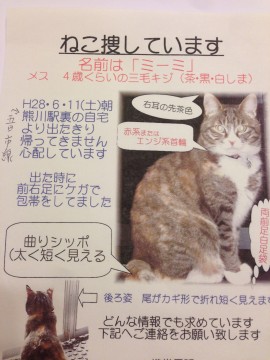 ねこ捜しています
名前は「ミーミ」
メス　4歳くらいの三毛キジ（茶・黒・白しま）
H28・6・11(土)朝
熊川駅裏の自宅
より出たきり
帰ってきません
心配しています
→五日市線
右耳の先茶色
赤系または
エンジ系首輪
出た時に
前右足にケガで
包帯をしてました
両前足白足袋
曲りシッポ
(太く短く見える
後ろ姿　尾がカギ形で折れ短く見えます
どんな情報でも求めています
下記へご連絡をお願い致します